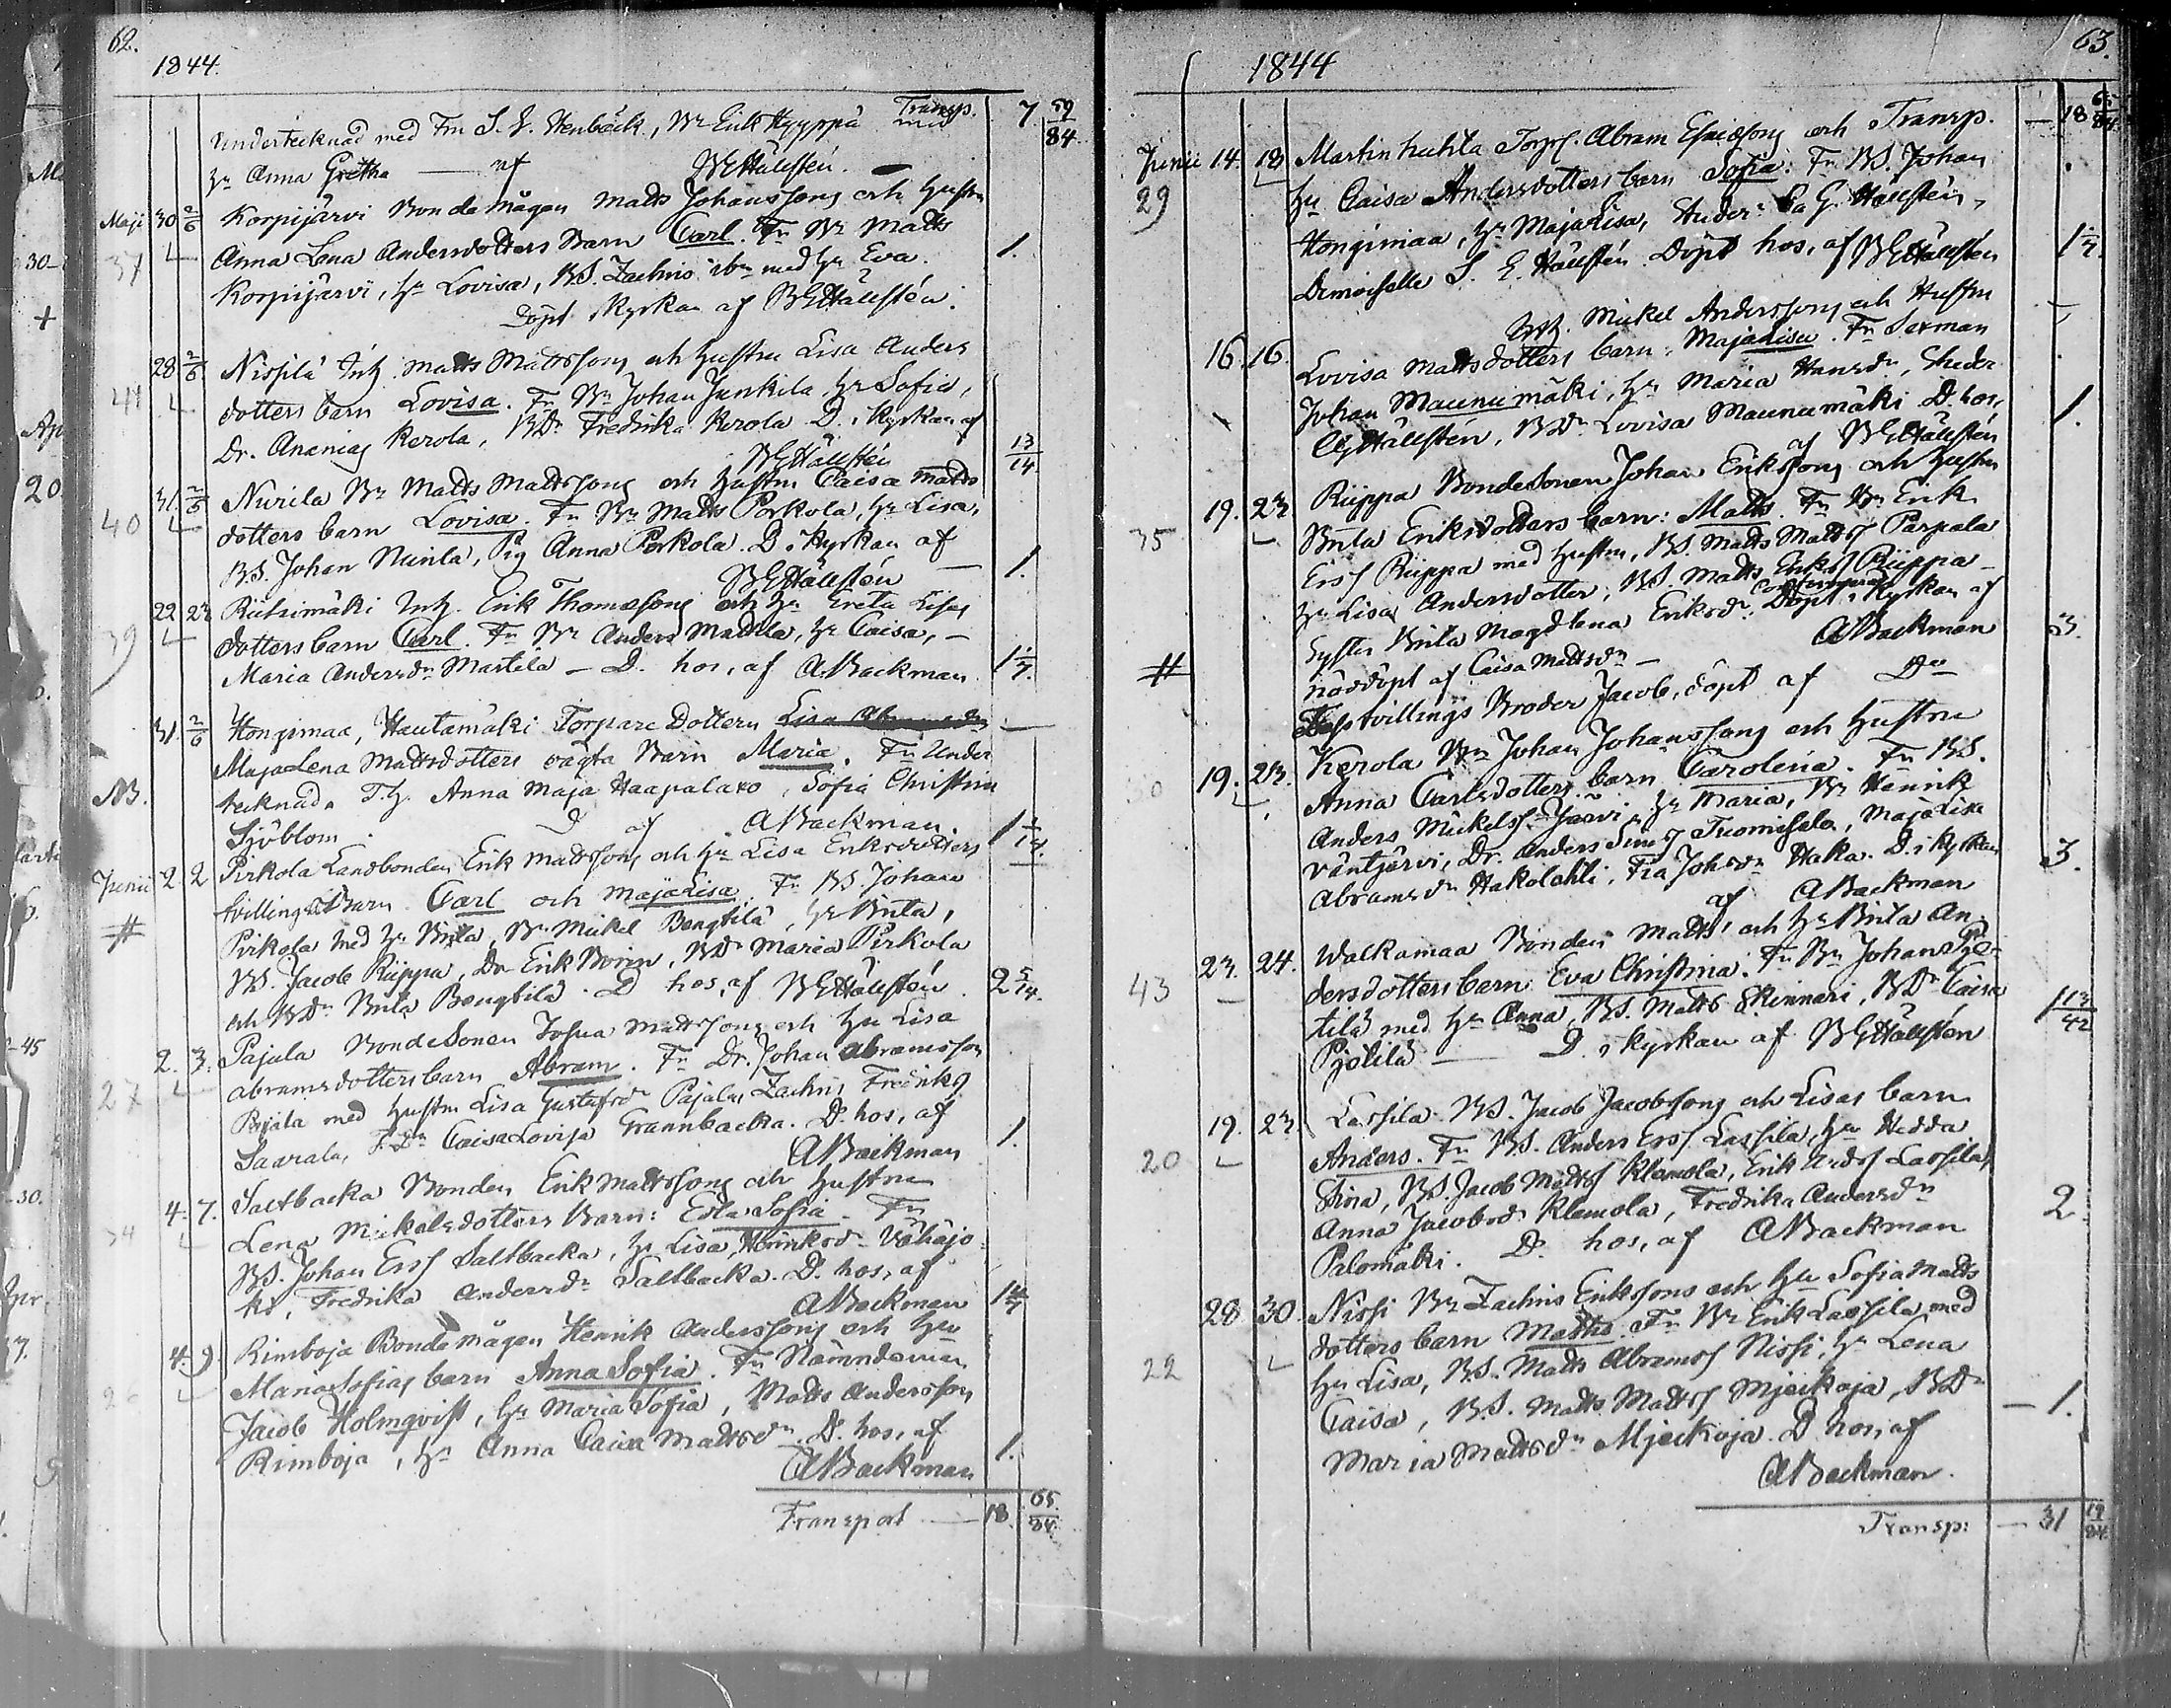 62.
1844.
Transp. 7 59/84
Undertecknad med Frn S. J. Stenbäck, Br Erik Hyyppä med
Hu Anna Gretha — af BGHällstén.
Maji 30 2/6 Korpijärvi Bondemågen Matts Johanssons och Hustru
37 Anna Lena Andersdotters Barn Carl. Fr Br Matts 1.
Korpijärvi, Hu Lovisa, BS. Zachris ibm med Hu Eva.
Döpt i Kyrkan af BGHällstén.
28 2/6 Nissilä Inh. Matts Mattssons och Hustru Lisa Anders
41 dotters barn Lovisa. Fr Br Johan Junkila, Hu Sofia,
Dr. Ananias Kerola, BDr Fredrika Kerola D. i Kyrkan af
BGHällstén 13/14
31. 2/6 Nurila Br Matts Mattssons och Hustru Caisa Matts
40 dotters barn Lovisa. Fr Br Matts Porkola, Hu Lisa,
BS. Johan Nurila, Pig Anna Porkola. D. i Kyrkan af — 1.
BGHällstén
22 23 Riitsimäki Inh. Erik Thomassons och Hu Greta Lisas
39 dotters barn Carl. Fr Br Anders Mattila, Hu Caisa, —
Maria Andersdr Martela — D. hos, af ABackman 1 1/7.
31. 2/6 Hongimaa, Hautamäki Torpare Dottern
Maja Lena Mattsdotters oägta Barn Maria. Fr Under
NB. tecknad, T.h. Anna Maja Haapalaxo, Sofia Christina
Sjöblom. D af ABackman. 1 1/14.
Junii 2. 2 Pirkola Landbonden Erik Mattssons och Hu Lisa Eriksdotters
tvillinge Barn Carl och MajaLisa. Fr BS. Johan
# Pirkola med Hu Brita, Br Mickel Bengtilä, Hu Brita,
BS. Jacob Riippa, Dr Erik Borin, BDr Maria Pirkola
och BDr Brita Bengtilä. D hos, af BGHällstén. 2 5/14.
2. 3. Pajala BondeSonen Josua Mattssons och Hu Lisa
27 Abramsdotters barn Abram. Fr Dr. Johan Abramsson
Pajala med Hustru Lisa Gustafsdr Pajala, Zachris Fredriks
Saarala, CaisaLovisa Grannbacka. D. hos, af 1.
ABackman
4. 7. Saltbacka Bonden Erik Mattssons och Hustru
34 Lena Mickelsdotters Barn: Edla Sofia. Fr
BS. Johan Erss Saltbacka, Hu Lisa Henriksdr Vähäjo-
ki, Fredrika Andersdr Saltbacka. D. hos, af
ABackman 1 4/7
4. 9. Rimboja Bondemågen Henrik Anderssons och Hu
26 Maria Sofias barn Anna Sofia. Fr Nämndeman
Jacob Holmqvist, Hu Maria Sofia, Matts Andersson
Rimboja, Hu Anna Caisa Mattsdr. D. hos, af 1.
ABackman
Transport — 18 65/84.
63.
1844
— 18 65/84
Junii 14. 18 Martinhuhta Torp. Abram Esaiæsons och Transp.
29 Hu Caisa Andersdotters barn Sofia. Fr BS. Johan
Hongimaa, Hu MajaLisa, G. Hällstén,
Demoiselle S. E. Hällstén. Döpt hos, af BGHällstén 1 1/7.
16. 16. Inh. Mickel Anderssons och Hustru
Lovisa Mattsdotters barn: MajaLisa. Fr Sexman
Johan Maunumäki, Hu Maria Hansdr,
Hällstén, BDr Lovisa Maunumäki D. hos, 1.
af BGHällstén
19. 23 Riippa BondeSonen Johan Erikssons och Hustru
35 Brita Eriksdotters barn: Matts. Fr Br Erik
Erss Riippa med Hustru, BS. Matts Mattss Parpala
Hu Lisa Andersdotter, BS. Matts Erikss Riippa —
Syster Brita Magdlena Eriksdr. Döpt i Kyrkan af
nöddöpt af Caisa Mattsdr — ABackman 3.
# tvillings Broder Jacob, döpt af Do
19. 23. Kerola Br Johan Johanssons och Hustru
Anna Carlsdotters barn Carolina. Fr BS.
Anders Mickelss Järvi, Hu Maria, Br Henrik
Väntjärvi, Dr. Anders Sims Tuomisalo, MajaLisa
Abramsdr Hakolahti, Fia Johsdr Haka. D. i Kyrkan 3.
af ABackman
23. 24. Walkamaa Bonden Matts' och Hu Brita An-
43 dersdotters barn Eva Christina. Fr Br Johan Pjä-
tilä med Hu Anna, BS. Matts Skinnari, BDr Caisa
Pjätilä — D. i Kyrkan af BGHällstén 1 13/42
19. 23 Lassila BS. Jacob Jacobssons och Lisas barn
20 Anders. Fr BS. Anders Erss Lassila, Hu Hedda
Stina, BS. Jacob Mattss Klemola, Erik Anders Lassila,
Anna Jacobsdr Klemola, Fredrika Andersdr 2
Palomäki. D. hos, af ABackman
28 30. Nissi Br Zachris Erikssons och Hu Sofia Matts
dotters barn Matts. Fr Br Erik Lassila med
22 Hu Lisa, BS. Matts Abramss Nissi, Hu Lena
Caisa, BS. Matts Mattss Mjeckoja, BDr — 1.
Maria Mattsdr Mjeckoja. D. hos, af
ABackman.
Transp: — 31 19/84